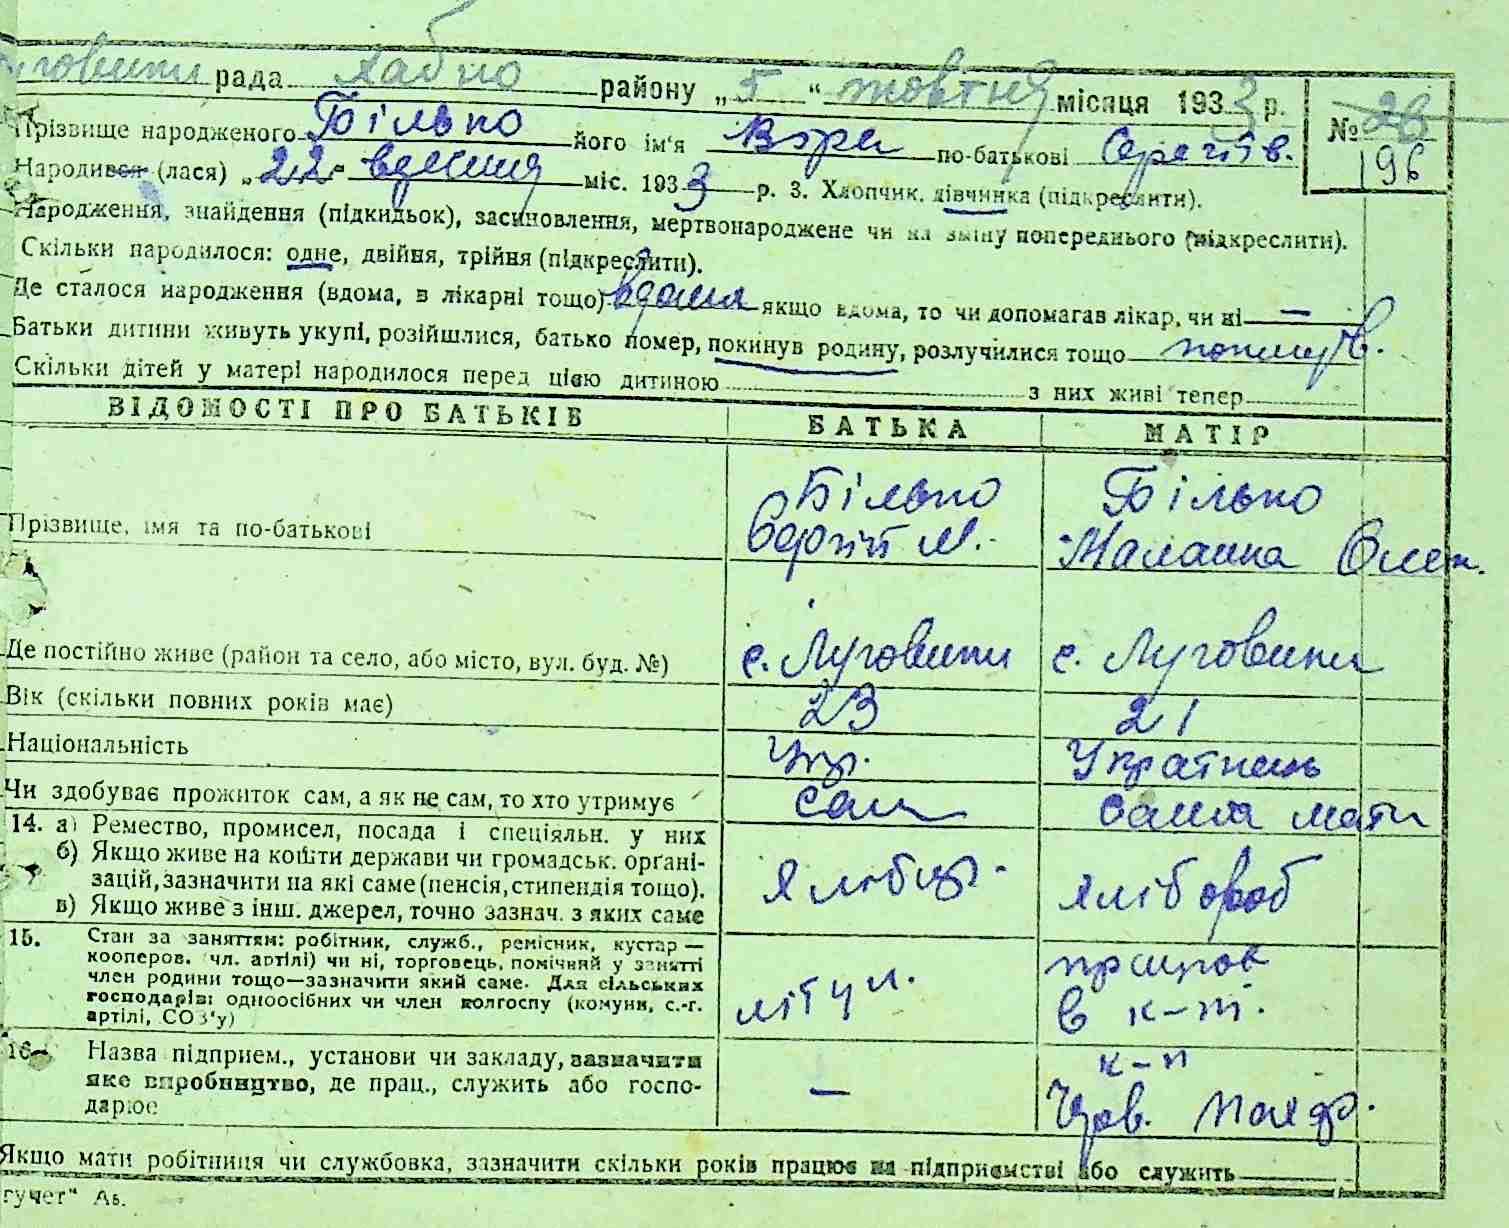 Луговики рада Хабно району „5“ жовтня місяця 1933 р.
№ 28
96
Прізвище народженого Білько його ім'я Віра по-батькові Сергіїв.
Народився (лася) „22“ вересня міс. 1933 р. 3. Хлопчик, дівчинка (підкреслити).
Народження, знайдення (підкидьок), засиновлення, мертвонароджене чи на зміну попереднього (підкреслити).
Скільки народилося: одне, двійня, трійня (підкреслити).
Де сталося народження (вдома, в лікарні тощо) вдома якщо вдома, то чи допомагав лікар, чи ні —
Батьки дитини живуть укупі, розійшлися, батько помер, покинув родину, розлучилися тощо
Скільки дітей у матері народилося перед цією дитиною з них живі тепер
ВІДОМОСТІ ПРО БАТЬКІВ БАТЬКА МАТІР
Прізвище, імя та по-батькові Білько Сергій М. Білько Маланка Олек.
Де постійно живе (район та село, або місто, вул. буд. №) с. Луговики с. Луговики
Вік (скільки повних років має) 23 21
Національність Укр. Українець
Чи здобуває прожиток сам, а як не сам, то хто утримує сам сама мати
14. а) Ремество, промисел, посада і спеціяльн. у них
б) Якщо живе на кошти держави чи громадськ. органі-
зацій, зазначити на які саме (пенсія, стипендія тощо).
в) Якщо живе з інш. джерел, точно зазнач. з яких саме
хлібороб
15. Стан за заняттям: робітник, служб., ремісник, кустар —
кооперов. чл. артілі) чи ні, торговець, помічний у занятті
член родини тощо—зазначити який саме. Для сільських
господарів: одноосібних чи член колгоспу (комуни, с.-г.
артілі, СОЗ'у)
працює
в к-пі.
16. Назва підприєм., установи чи закладу, зазначити
яке виробництво, де прац., служить або госпо-
дарює
—
к-п
Якщо мати робітниця чи службовка, зазначити скільки років працює на підприємстві або служить